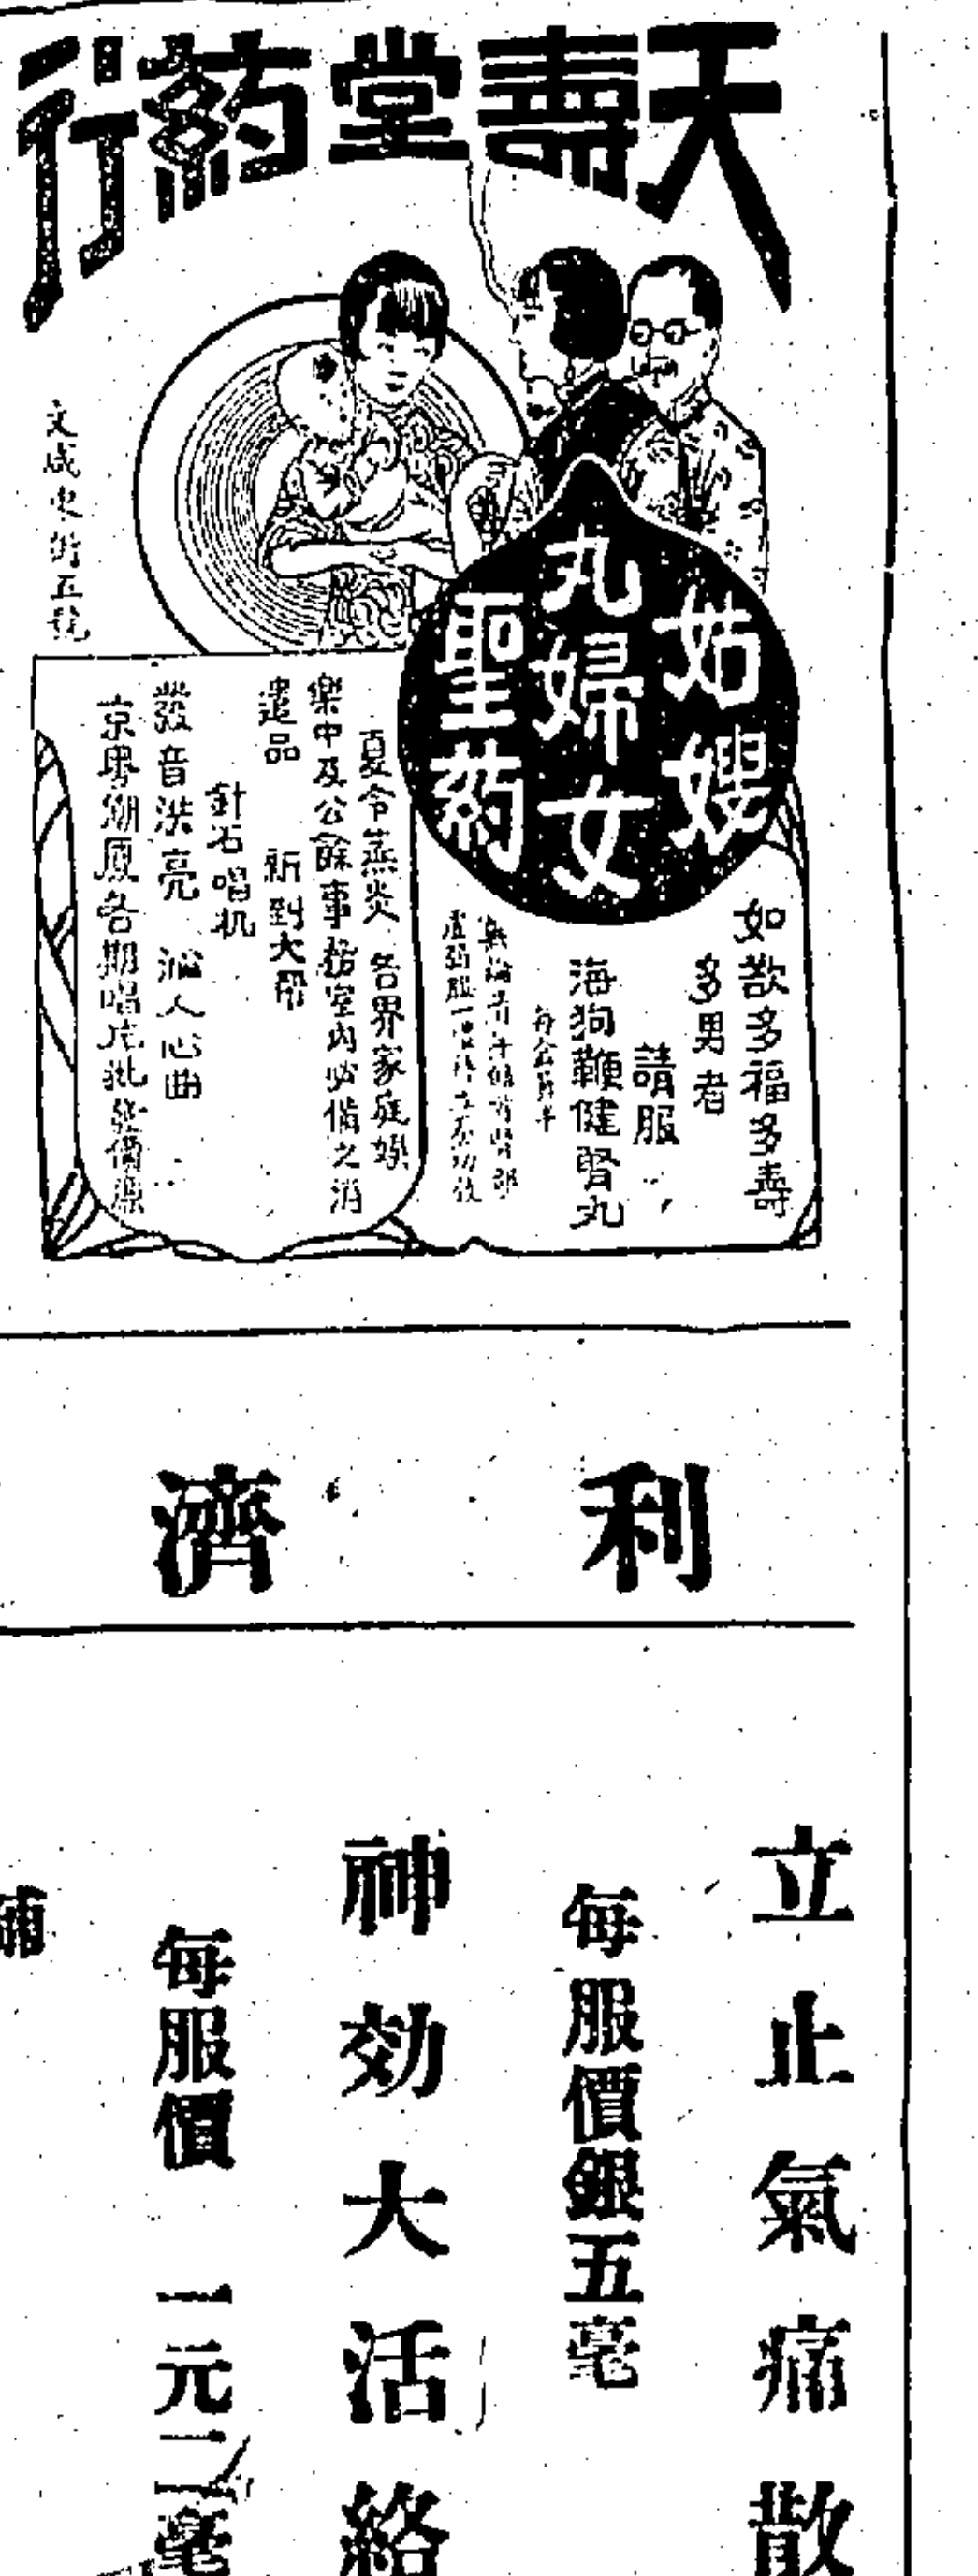 天壽堂葯行
姑嫂
丸婦女
聖葯
如欲多福多壽
多男者
請服
海狗鞭健腎丸
夏令蒸炎 各界家庭娛
樂中及公餘事務室內必備之消
遣品 新到大帮
針石唱机
發音洪亮 人心曲
京粵潮厦各期唱片批發價廉
文咸東街五號
利濟
立止氣痛散
每服價銀五毫
神効大活絡
每服價 一元二毫